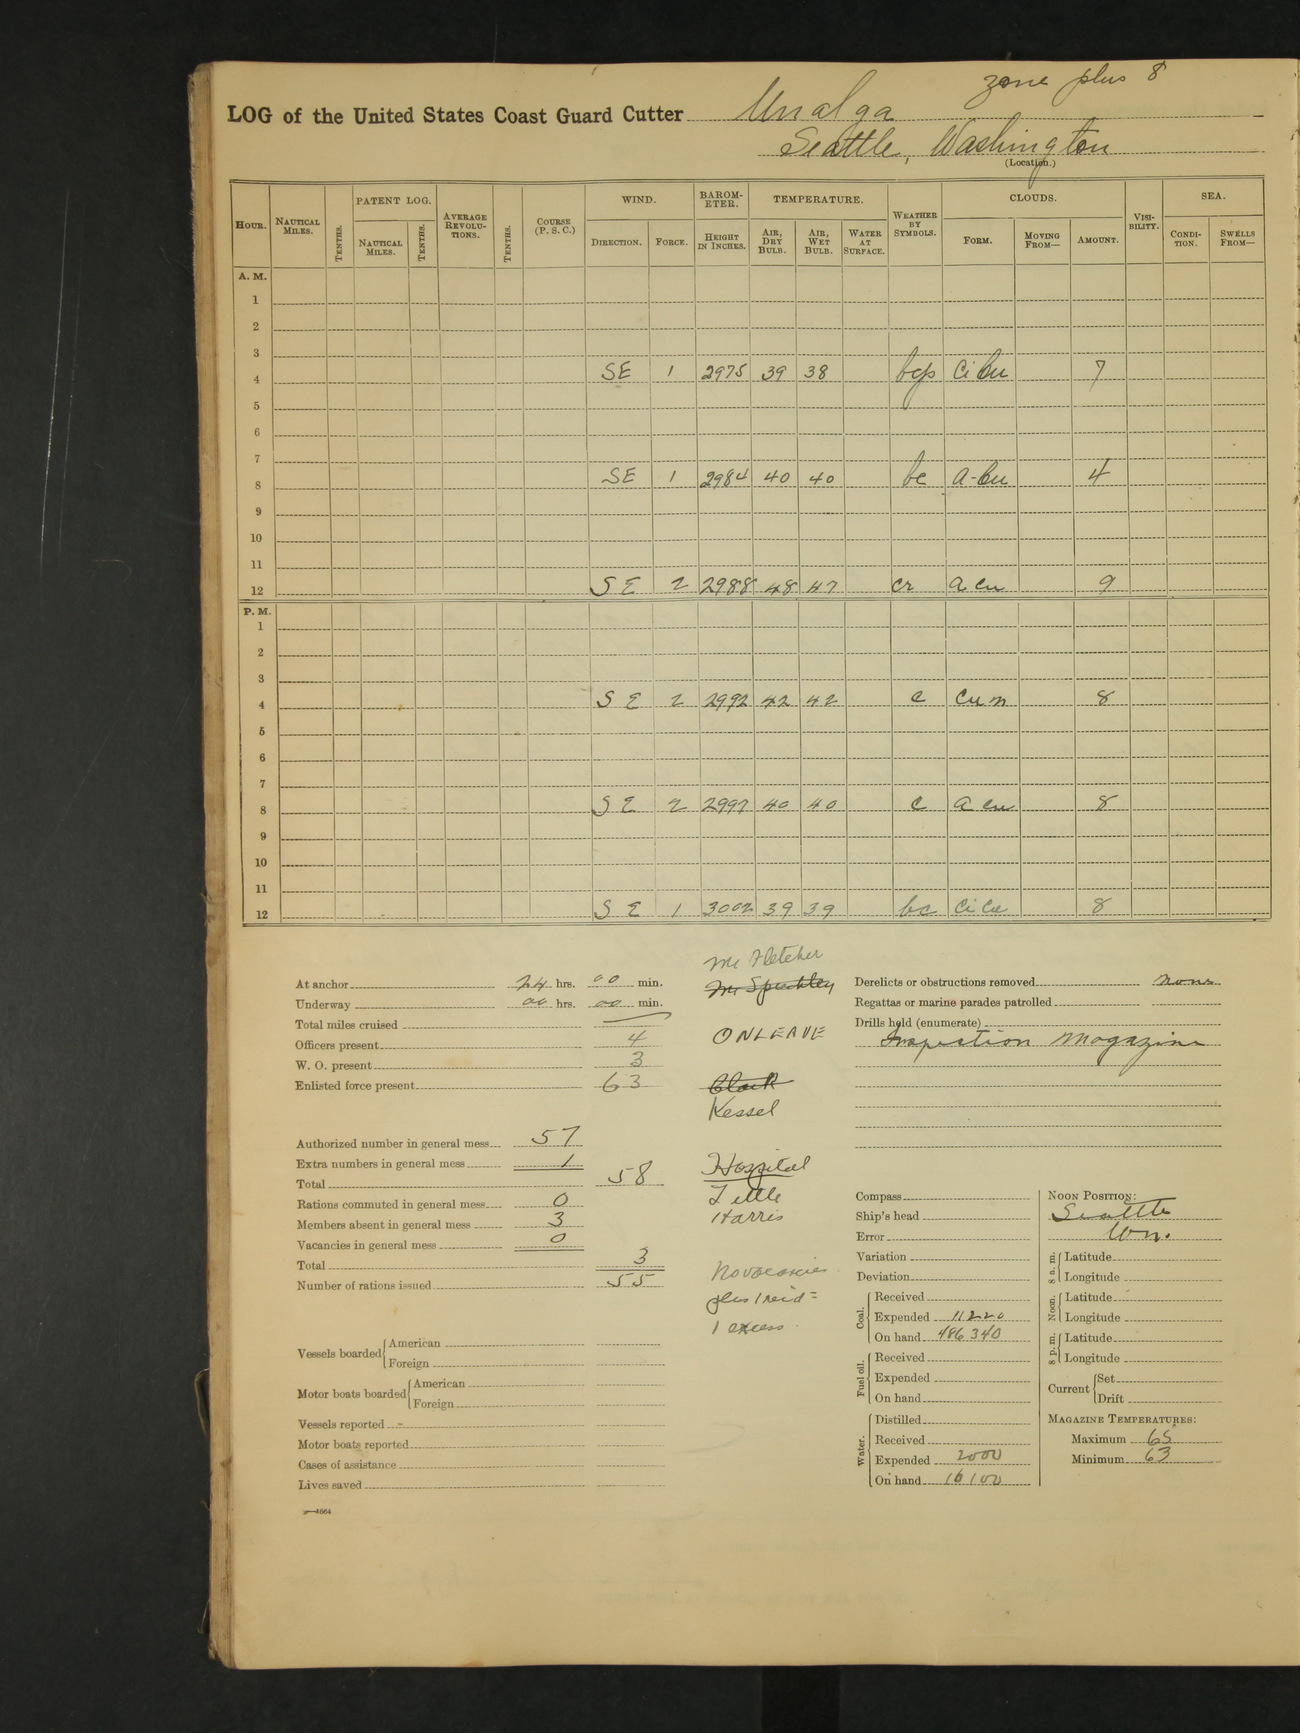 zone plus 8
LOG of the United States Coast Guard Cutter Unalga
Seattle, Washington
(Location.)
HOUR. NAUTICAL MILES. TENTHS. PATENT LOG. NAUTICAL MILES. TENTHS. AVERAGE REVOLU-TIONS. TENTHS. COURSE (P. S. C.) WIND. DIRECTION. FORCE. BAROM-ETER. HEIGHT IN INCHES. TEMPERATURE. AIR, DRY BULB. AIR, WET BULB. WATER AT SURFACE. WEATHER BY SYMBOLS. CLOUDS. FORM. MOVING FROM— AMOUNT. VISI-BILITY. SEA. CONDI-TION. SWELLS FROM—
A. M.
1
2
3
4 SE 1 2975 39 38 bcp Ci Cu 7
5
6
7
8 SE 1 2984 40 40 bc A-Cu 4
9
10
11
12 SE 2 2988 48 47 cr a cu 9
P. M.
1
2
3
4 SE 2 2992 42 42 c Cu n 8
5
6
7
8 SE 2 2997 40 40 c a cu 8
9
10
11
12 SE 1 3002 39 39 bc Ci Cu 8
At anchor 24 hrs. 00 min.
Underway 00 hrs. 00 min.
Total miles cruised
Officers present 4
W. O. present 3
Enlisted force present 63
Authorized number in general mess 57
Extra numbers in general mess 1
Total 58
Rations commuted in general mess 0
Members absent in general mess 3
Vacancies in general mess 0
Total 3
Number of rations issued 55
Vessels boarded American
Foreign
Motor boats boarded American
Foreign
Vessels reported
Motor boats reported
Cases of assistance
Lives saved
4664
Mr Fletcher
ON LEAVE
Clark
Kessel
Hospital
Harris
No vacancies
plus 1 reid =
1 excess
Derelicts or obstructions removed none
Regattas or marine parades patrolled
Drills held (enumerate)
Inspection Magazine
Compass
Ship's head
Error
Variation
Deviation
Coal. Received
Expended 11220
On hand 486340
Fuel oil. Received
Expended
On hand
Water. Distilled
Received
Expended 2000
On hand 16100
NOON POSITION:
Seattle
Wn.
8 a. m. Latitude
Longitude
Noon. Latitude
Longitude
8 p. m. Latitude
Longitude
Current Set
Drift
MAGAZINE TEMPERATURES:
Maximum 65
Minimum 63